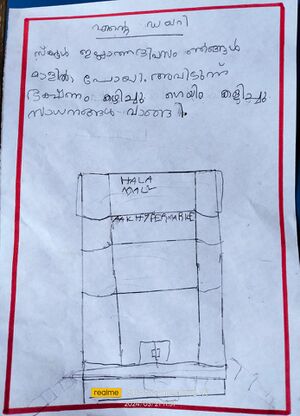 എന്റെ ഡയറി
സ്കൂൾ ഇല്ലാത്തദിവസം ഞങ്ങൾ
മാളിൽ പോയി. അവിടുന്ന്
ഭക്ഷണം കഴിച്ചു ഗെയിം കളിച്ചു
സാധനങ്ങൾ വാങ്ങി.
HALA
MALL
HYPERMARKE
realme